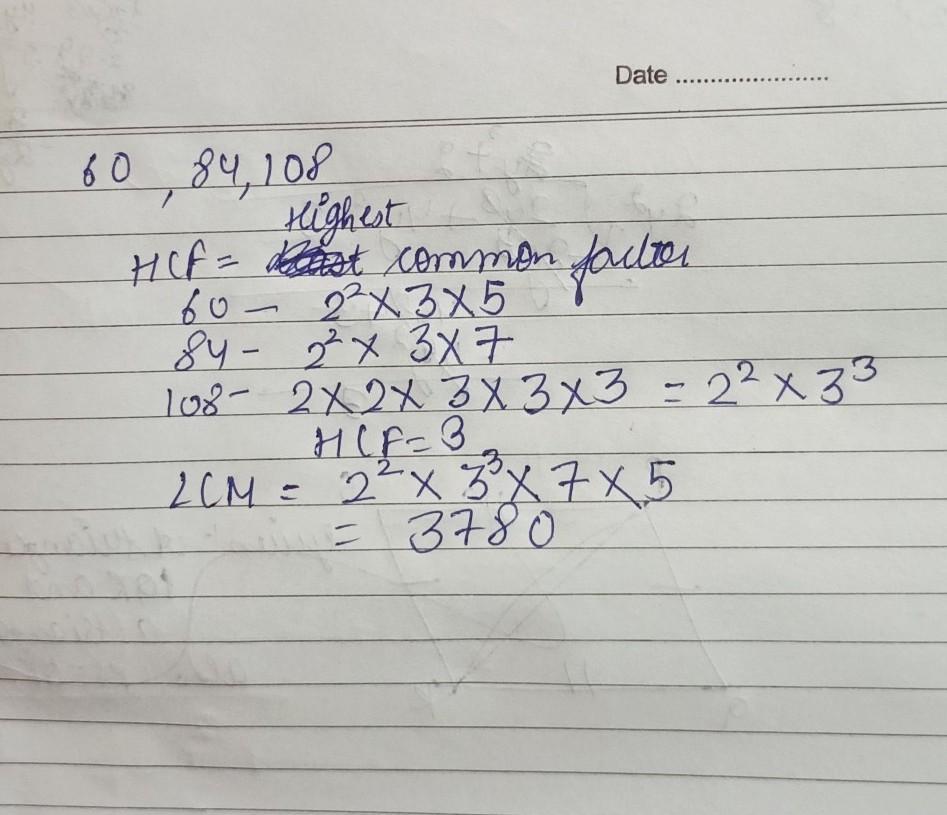 Date ........................
60, 84, 108
Highest
HCF = common factor
60 - 2² × 3 × 5
84 - 2² × 3 × 7
108 - 2 × 2 × 3 × 3 × 3 = 2² × 3³
HCF = 3
LCM = 2² × 3³ × 7 × 5
= 3780